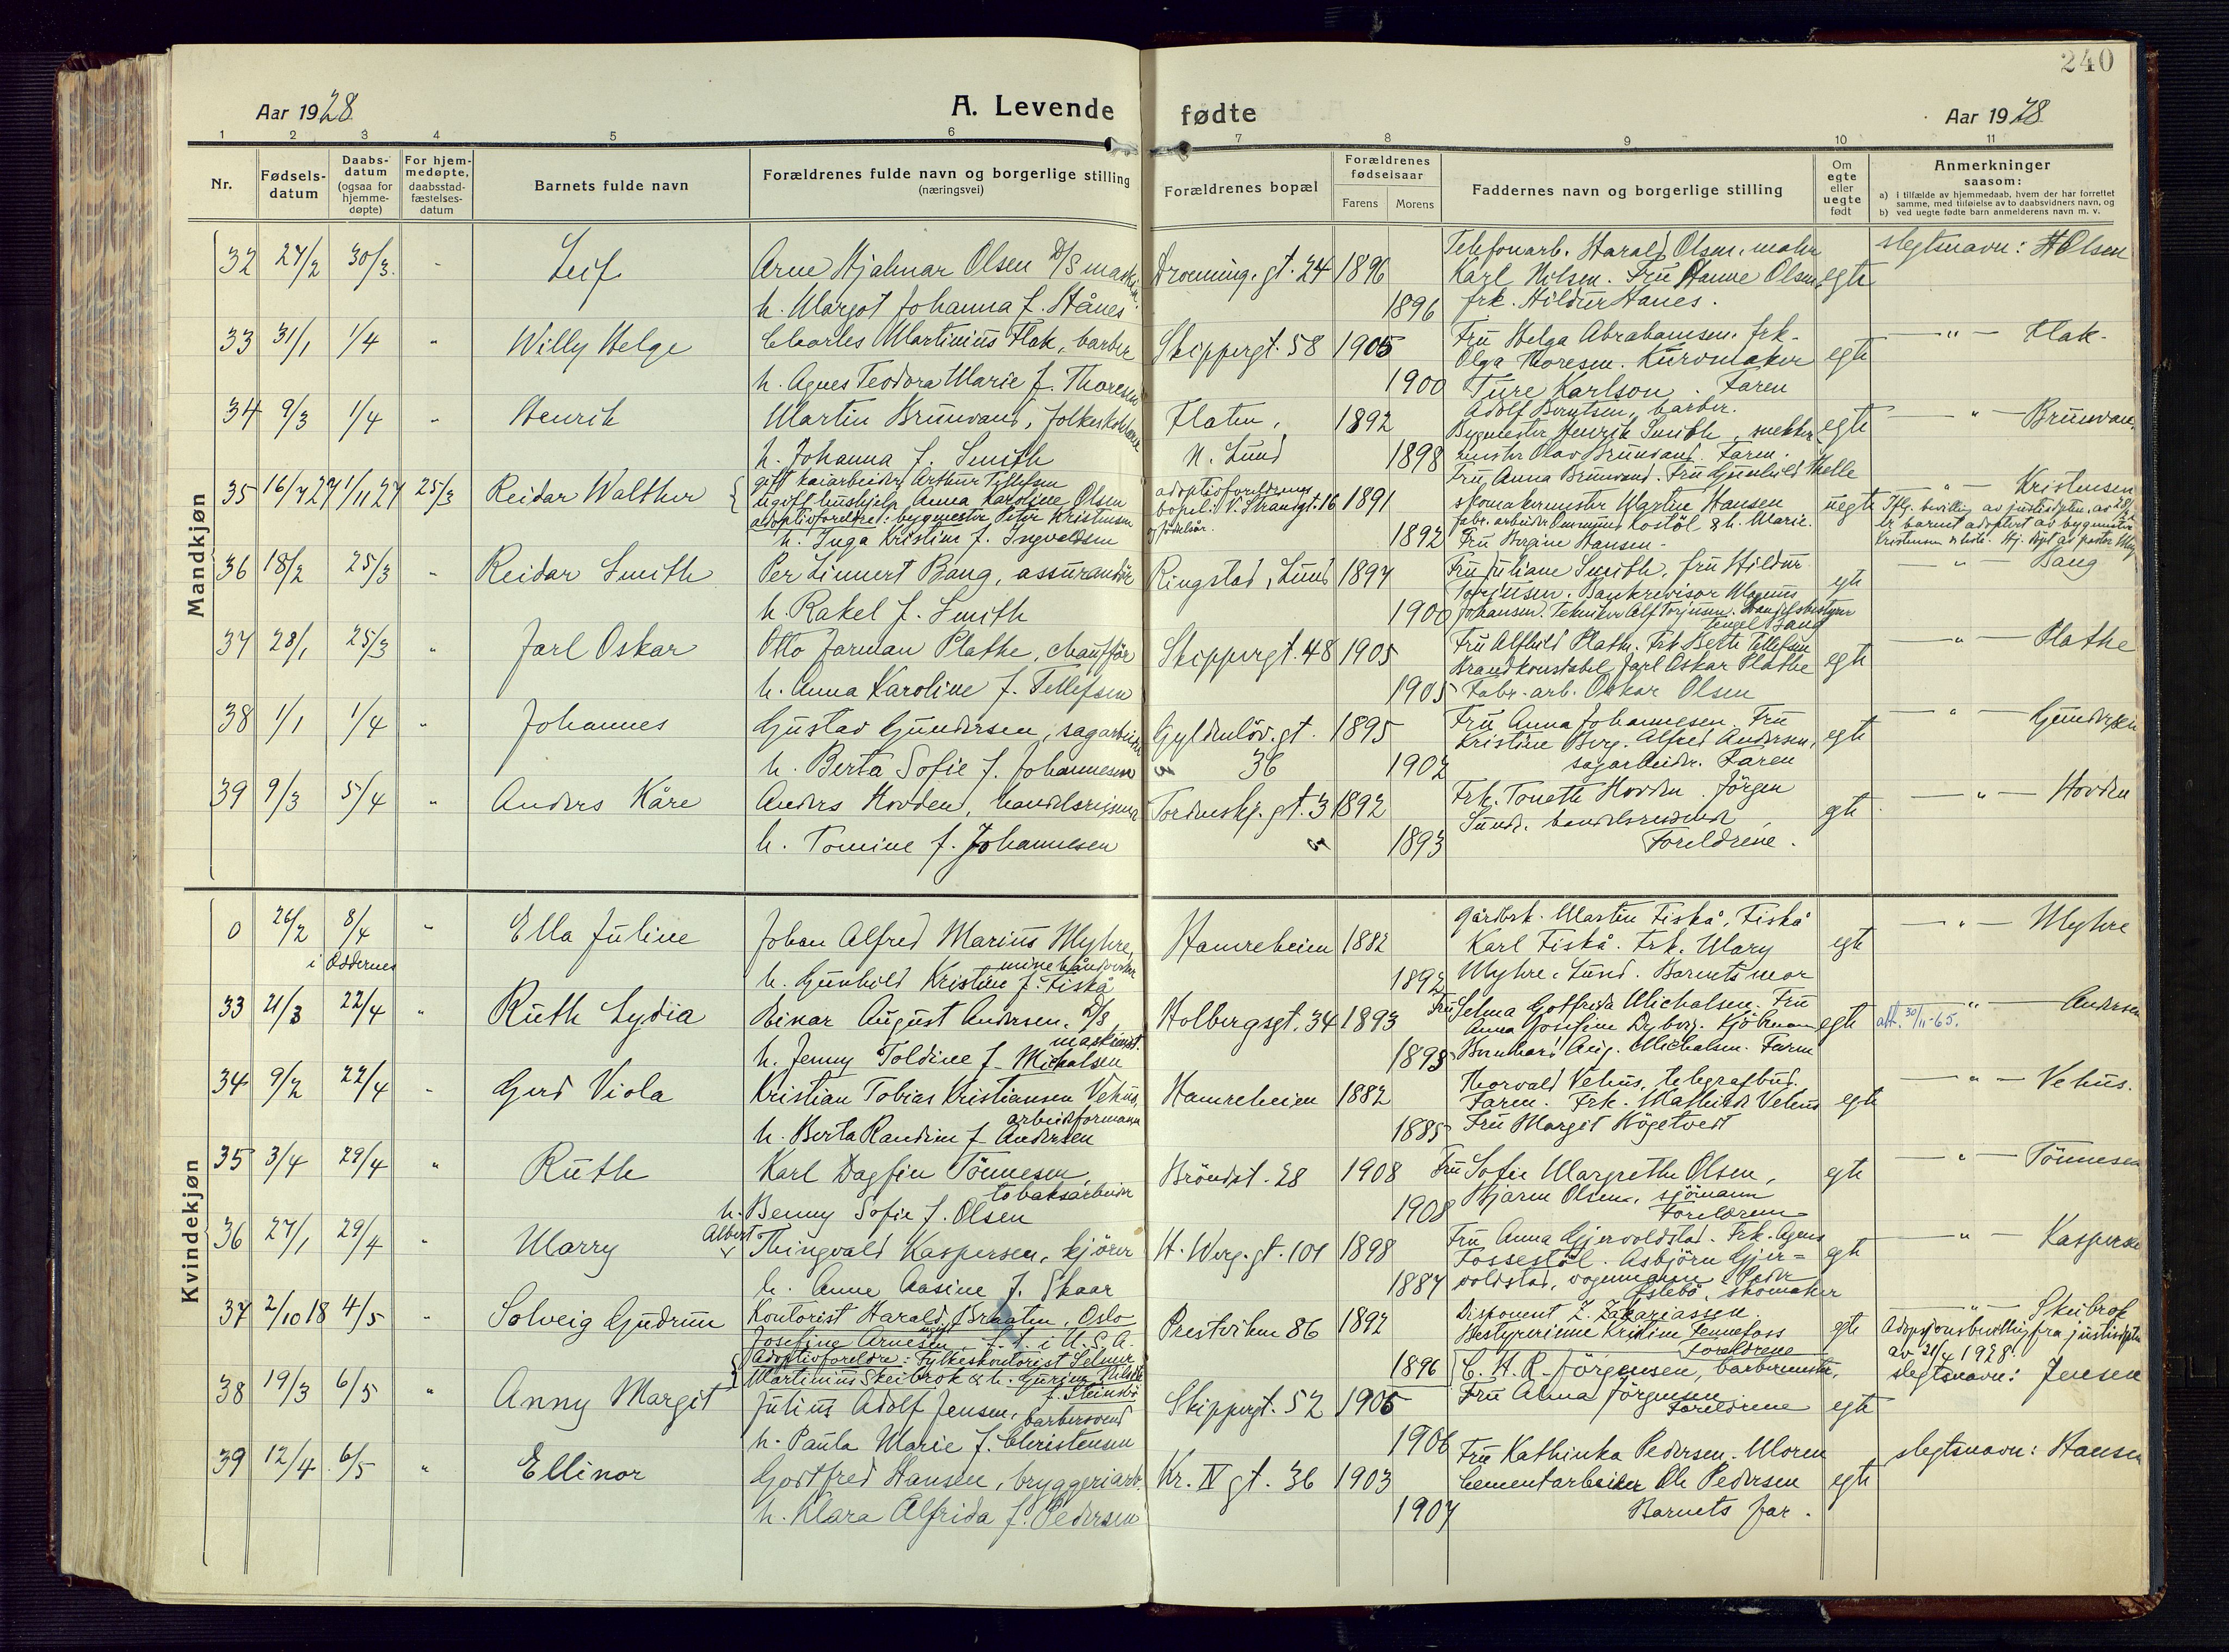 240
Aar 1928
A. Levende fødte
Aar 1928
1 2 3 4 5 6 7 8 9 10 11
Nr.
Fødsels-datum
Daabs-datum (ogsaa for hjemme-døpte)
For hjem-medøpte, daabsstad-fæstelses-datum
Barnets fulde navn
Forældrenes fulde navn og borgerlige stilling (næringsvei)
Forældrenes bopæl
Forældrenes fødselsaar
Farens Morens
Faddernes navn og borgerlige stilling
Om egte eller uegte født
Anmerkninger saasom:
a) i tilfælde av hjemmedaab, hvem der har forrettet samme, med tilføielse av to daabsvidners navn, og
b) ved uegte fødte barn anmelderens navn m. v.
Mandkjøn
32 24/2 30/3 - Leif
Arne Hjalmar Olsen D/S maskin.
h. Margot Johanna f. Hånes
Dronning. gt. 24 1896
1896
Telefonarb. Harald Olsen, maler
Karl Nilsen. Fru Hanne Olsen
frk. Hildur Hanes.
egte
slegtsnavn: Olsen
33 31/1 1/4 " Willy Helge
Charles Martinius Flak, barber
h. Agnes Teodora Marie f. Thoresen
Skippergt. 58 1905
1900
Fru Helga Abrahamsen, frk.
Olga Thoresen. Kurvmaker
Ture Karlson. Faren
egte
— " — Flak.
34 9/3 1/4 " Henrik
Martin Brunvand,
h. Johanna f. Smith
Flaten,
N. Lund
1892
1898
Adolf Berntsen, barber.
Bygmester Henrik Smith, snekker
mester Olav Brunvand. Faren.
Fru Anna Brunvand. Fru Gunhild Kelle
egte
— " — Brunvand
35 16/7 27 1/11 27 25/3 Reidar Walther
gift kaiarbeider Arthur Tellefsen
ugift hushjelp Anna Karoline Olsen
adoptivforeldre: bygmester Peter Kristensen
h. Inga Kristine f. Ingvaldsen
adoptivforeldrenes
bopel: V. Strandgt. 16
og fødselsår.
1891
1892
skomakermester Martin Hansen
fabr. arbeider Kostøl & h. Marie.
Fru Bergine Hansen.
uegte
— " — Kristensen
Iflg. bevilling av justisdptm. av
er barnet adoptert av bygmester
Kristensen & hustr. Hj. døpt av pastor
36 18/2 25/3 " Reidar Smith
Per Linnert Bang, assurandør
h. Rakel f. Smith
Ringstad, Lund 1897
1900
Fru Juliane Smith, fru Hildur
Torjusen. Bankrevisor Magnus
Johansen. Tekniker Alf Torjusen. Handelsbestyrer
Engel Bang
egte
— " — Bang
37 28/1 25/3 " Jarl Oskar
Otto Jarman Plathe, chauffør
h. Anna Karoline f. Tellefsen
Skippergt. 48 1905
1905
Fru Alfhild Plathe. Frk. Tellefsen
Brandkonstabel Jarl Oskar Plathe
Fabr. arb. Oskar Olsen
egte
— " — Plathe
38 1/1 1/4 " Johannes
Gustav Gundersen, sagarbeider
h. Berta Sofie f. Johannesen
Gyldenløv. gt.
36
1895
1902
Fru Anna Johannesen. Fru
Kristine Berg. Alfred Andersen,
sagarbeider. Faren
egte
— " — Gundersen
39 9/3 5/4 " Anders Kåre
Anders Hovden, handelsreisende
h. Tomine f. Johannesen
Tordenskj. gt. 3 1892
1893
Frk. Toneth Hovden. Jörgen
Sunde, handelsreisende
Foreldrene.
egte
— " — Hovden
Kvindekjøn
0 26/2 8/4 " Ella Juline
i Oddernes
Johan Alfred Marius Myhre,
minehåndverker
h. Gunhild Kristine f. Fiskå
Hamreheien 1882
1892
Gårdbrk. Martin Fiskå, Fiskå
Karl Fiskå. Frk. Mary
Myhre, Lund. Barnets mor
egte
— " — Myhre
33 21/3 22/4 " Ruth Lydia
Einar August Andersen, D/S
maskinist.
h. Jenny Toldine f. Michalsen
Holbergsgt. 34 1893
1893
Fru Selma Gotfrida Michalsen. Fru
Anna Josefine Dyborg. Kjøbmann
Bernhard Aug. Michalsen. Faren
egte
att. 30/11-65.
" — Andersen
34 9/2 22/4 - Gerd Viola
Kristian Tobias Kristiansen Vehus,
arbeidsformann
h. Berta Randine f. Andersen
Hamreheien 1882
1885
Thorvald Vehus, telegrafbud.
Faren. Frk. Mathilde Vehus
Fru Margit Högetveit
egte
— " — Vehus.
35 3/4 29/4 " Ruth
Karl Dagfin Tönnesen,
tobaksarbeider
h. Benny Sofie f. Olsen
Bröndst. 28 1908
1908
Fru Sofie Margrethe Olsen,
Bjarne Olsen, sjömann
Foreldrene
egte
— " — Tönnesen
36 27/1 29/4 " Marry
Albert
Thingvald Kaspersen, kjörer
h. Anne Aasine f. Skaar
H. Werg. gt. 101 1898
1887
Fru Anna Gjervoldstad. Frk. Agnes
Fossestöl. Asbjörn Gjer=
voldstad, vognmann. Peder
Eftebö, skomaker
egte
— " — Kaspersen
37 2/10 18 4/5 " Solveig Gudrun
Kontorist Harald Braaten, Oslo
ugift
Josefine Arnesen i U.S.A.
Adoptivforeldre: Fylkeskontorist Selmer
Martinius Skeibrok & h. Gurine Nilsdtr
f. Steinsbö
Prestviken 86 1892
1896
Disponent Z. Zakariassen.
Bestyrerinne Kristine Tennefoss
Foreldrene
egte
— " — Skeibrok
Adopsjonsbevilling fra justisdptm
av 21/4 1928.
38 19/3 6/5 " Anny Margit
Julius Adolf Jensen,
barbersvend
h. Paula Marie f. Christensen
Skippergt. 52 1905
1906
C. H. R. Jörgensen, barbermester,
Fru Anna Jörgensen
Foreldrene
egte
slegtsnavn: Jensen
39 12/4 6/5 " Ellinor
Godtfred Hansen, bryggeriarb.
h. Klara Alfrida f. Pedersen
Kr. IV gt. 36 1903
1907
Fru Kathinka Pedersen. Moren
Cementarbeider Ole Pedersen
Barnets far.
egte
slegtsnavn: Hansen